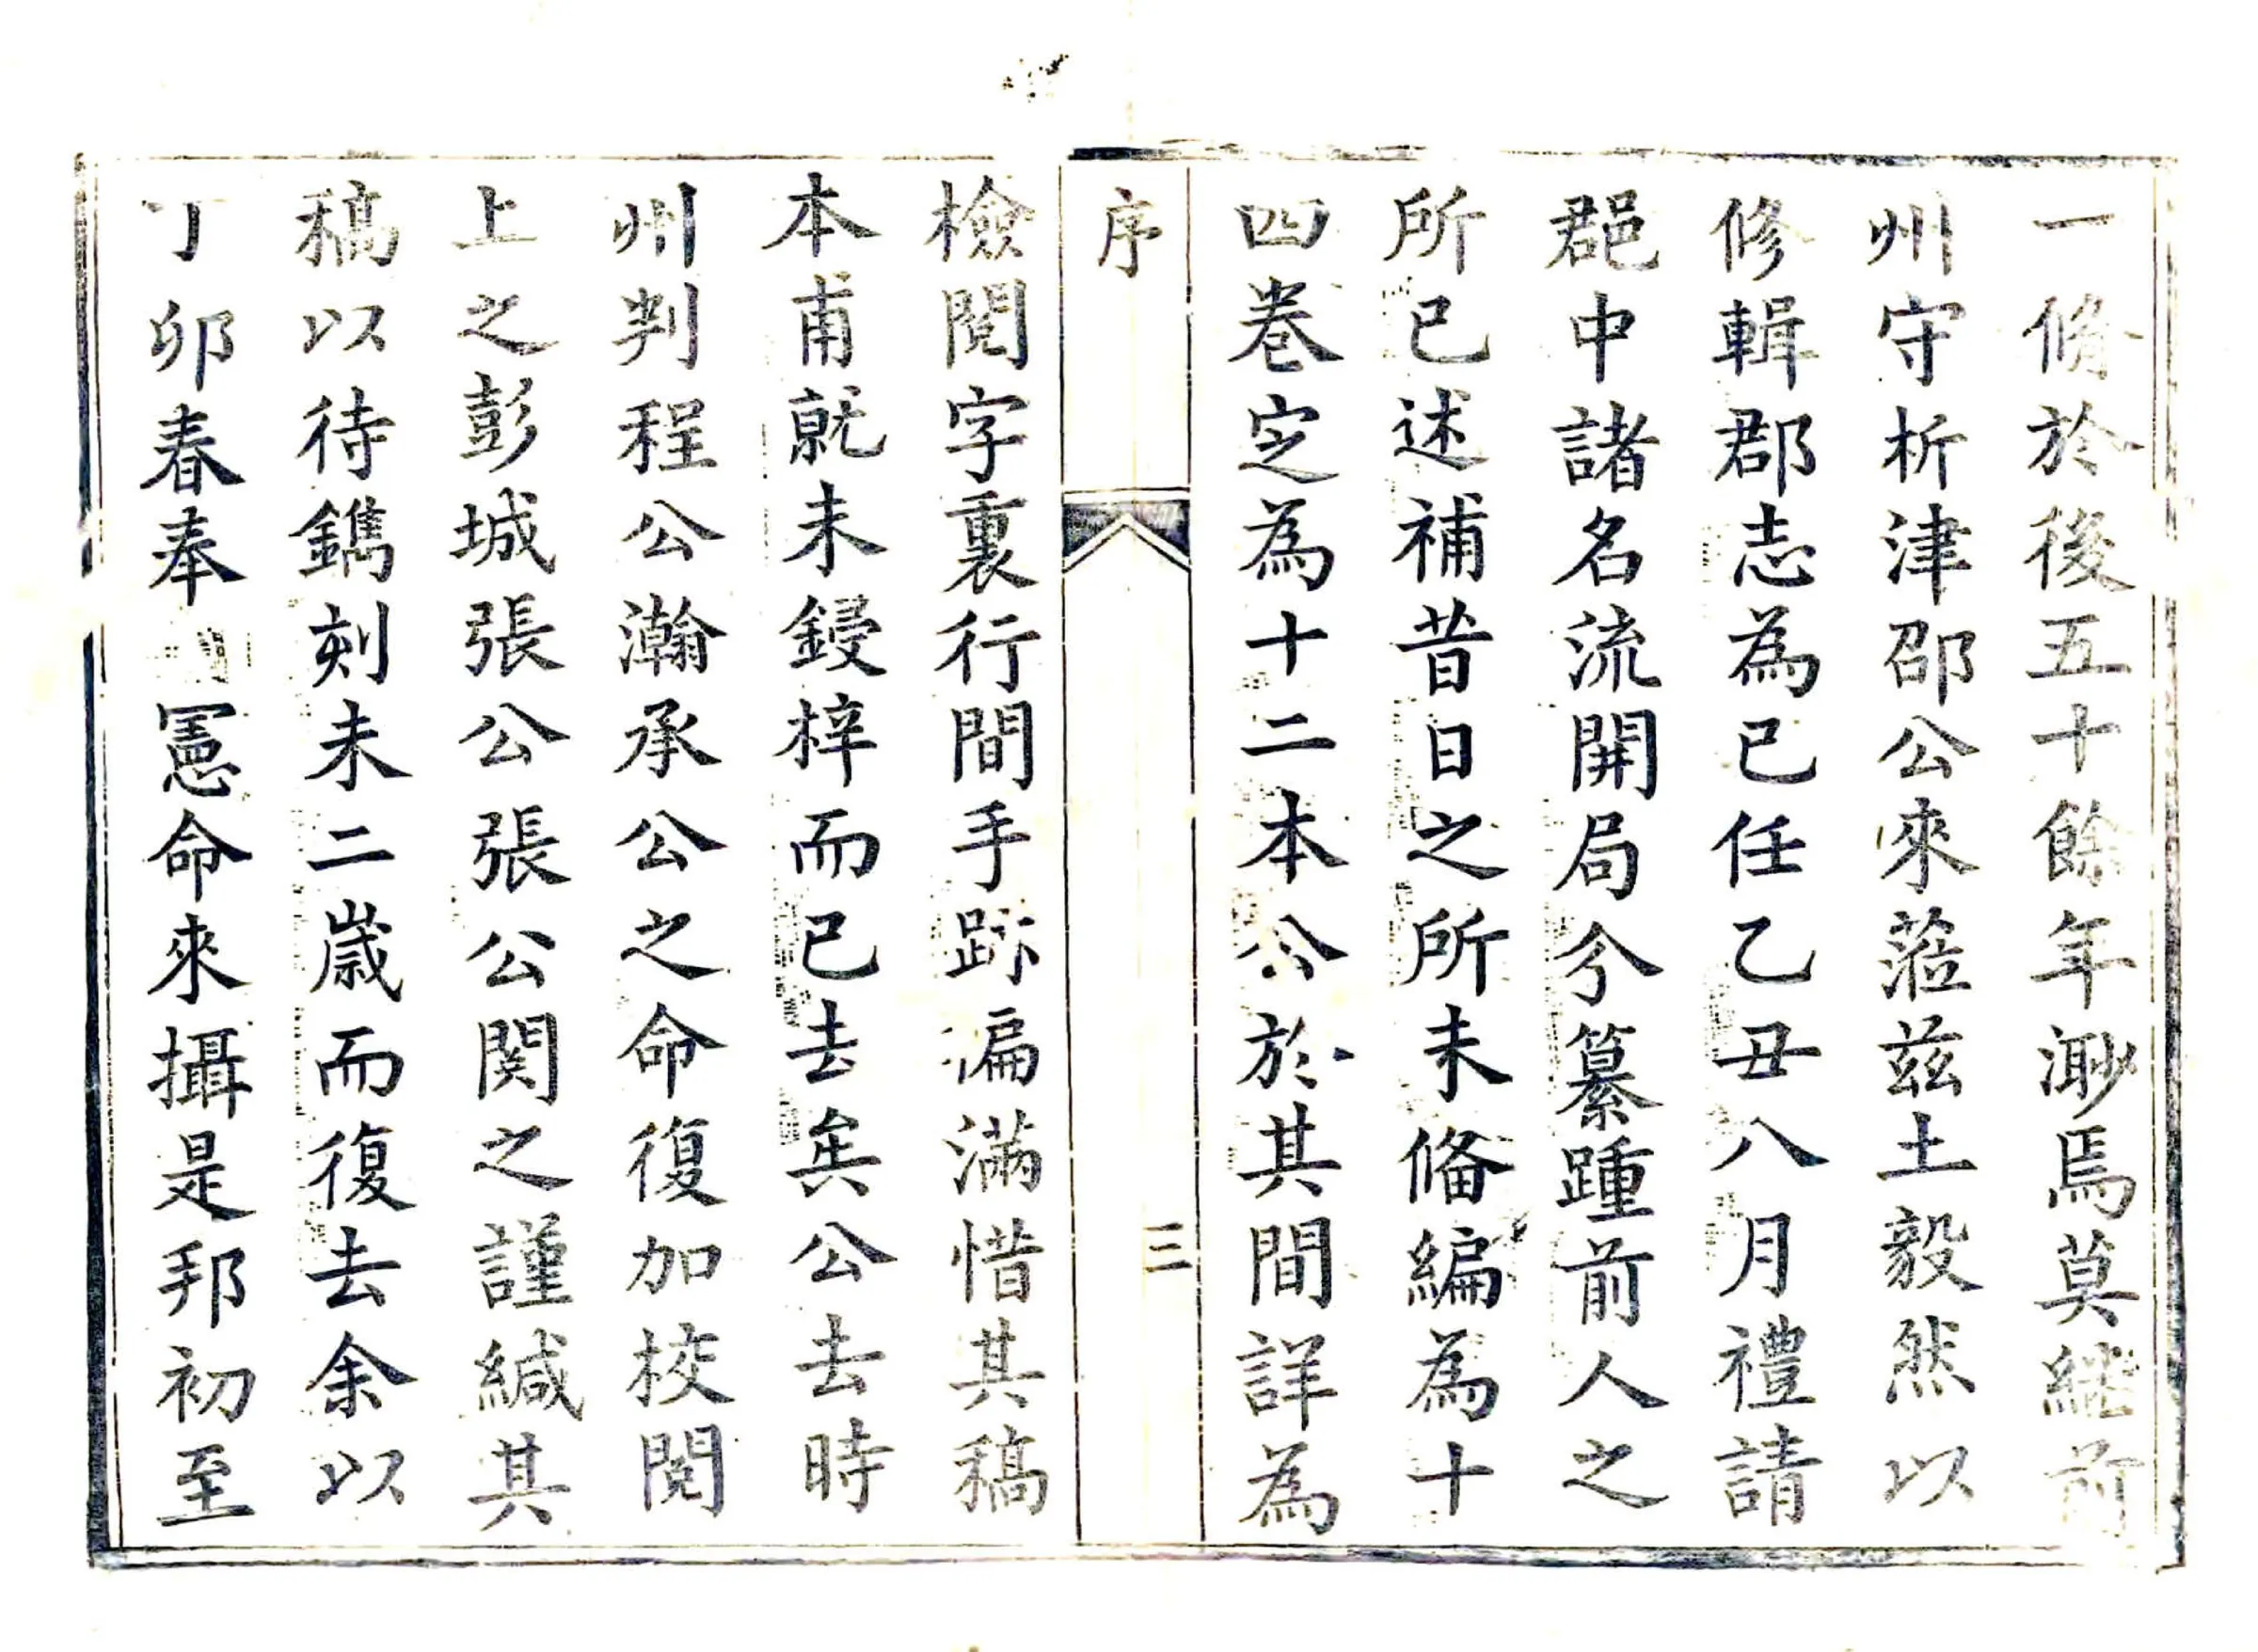 一脩於後五十餘年渺焉莫繼前
州守析津邵公來蒞茲土毅然以
修輯郡志為己任乙丑八月禮請
郡中諸名流開局分纂踵前人之
所已述補昔日之所未備編為十
四卷定為十二本公於其間詳為
序
三
檢閱字裏行間手跡徧滿惜其稿
本甫就未鋟梓而已去矣公去時
州判程公瀚承公之命復加校閱
上之彭城張公張公閱之謹緘其
稿以待鐫刻未二歲而復去余以
丁卯春奉 憲命來攝是邦初至